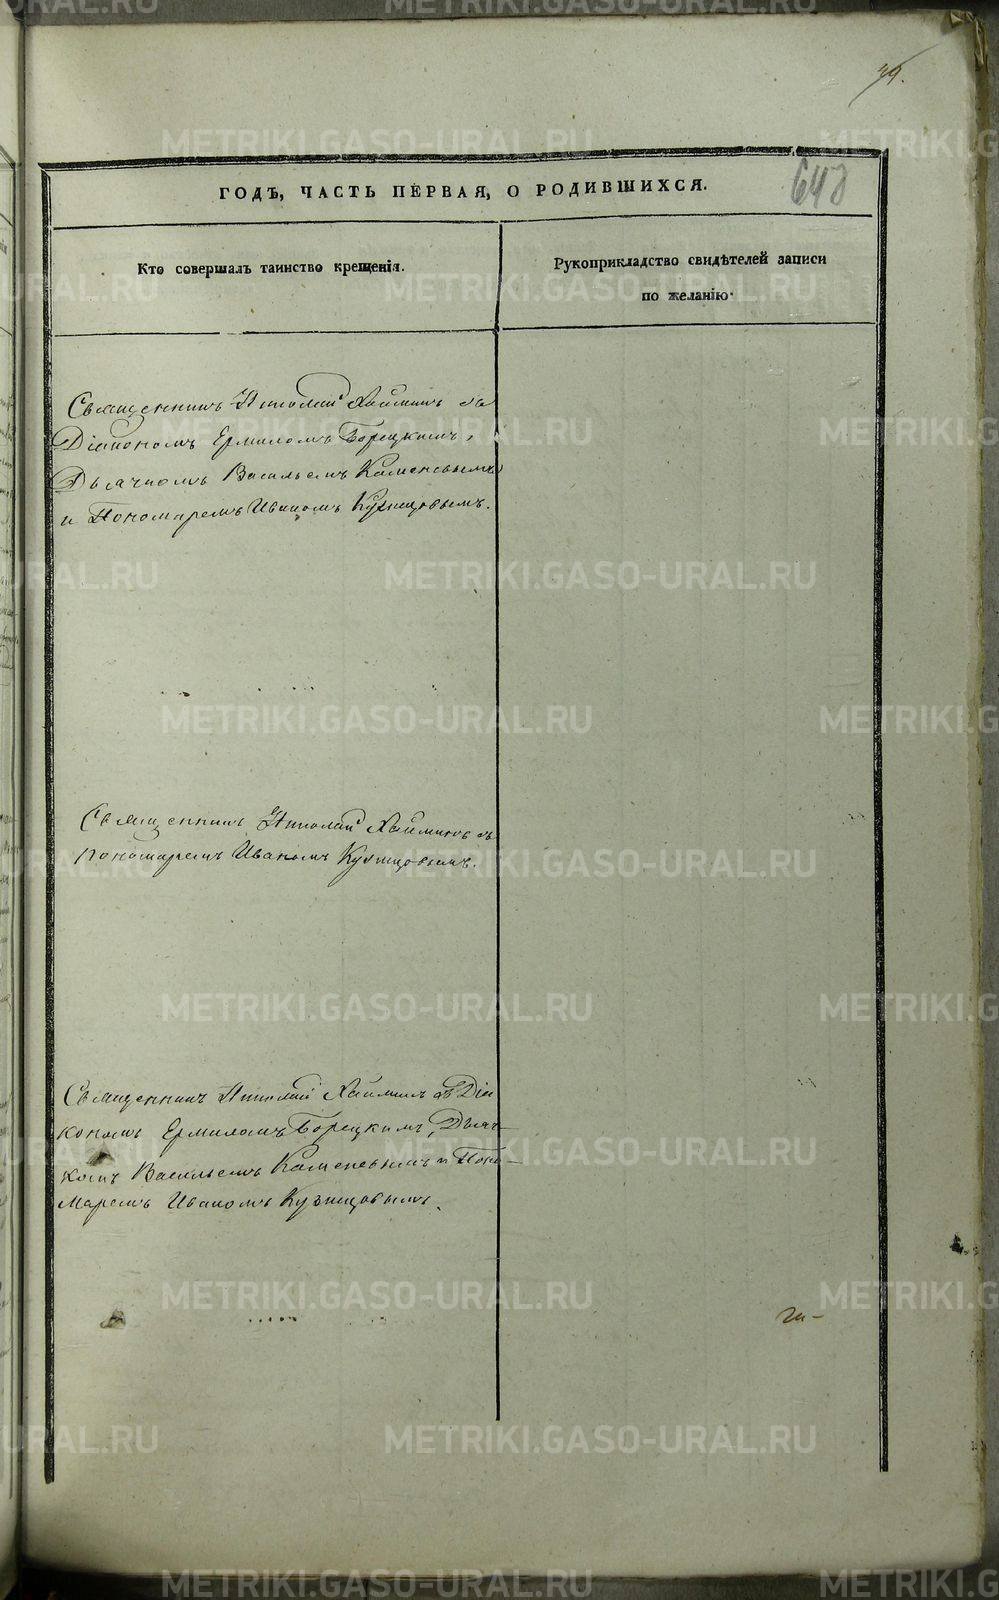 39.
648
ГОДЪ, ЧАСТЬ ПЕРВАЯ, О РОДИВШИХСЯ.
Кто совершалъ таинство крещенія.
Рукоприкладство свидѣтелей записи
по желанію
Священникъ Николай Хаймин съ
Діакономъ Ермиломъ Борецкимъ,
Дьячкомъ Васильемъ Каменевымъ
и Пономаремъ Иваномъ Кузнцовымъ.
Священникъ Николай съ
пономаремъ Иваномъ Кузнцовымъ.
Священникъ Николай съ Діа
кономъ Ермиломъ Борецкимъ, Дьяч-
комъ Васильемъ Каменевымъ и Поно-
маремъ Иваномъ Кузнцовымъ.
METRIKI.GASO-URAL.RU